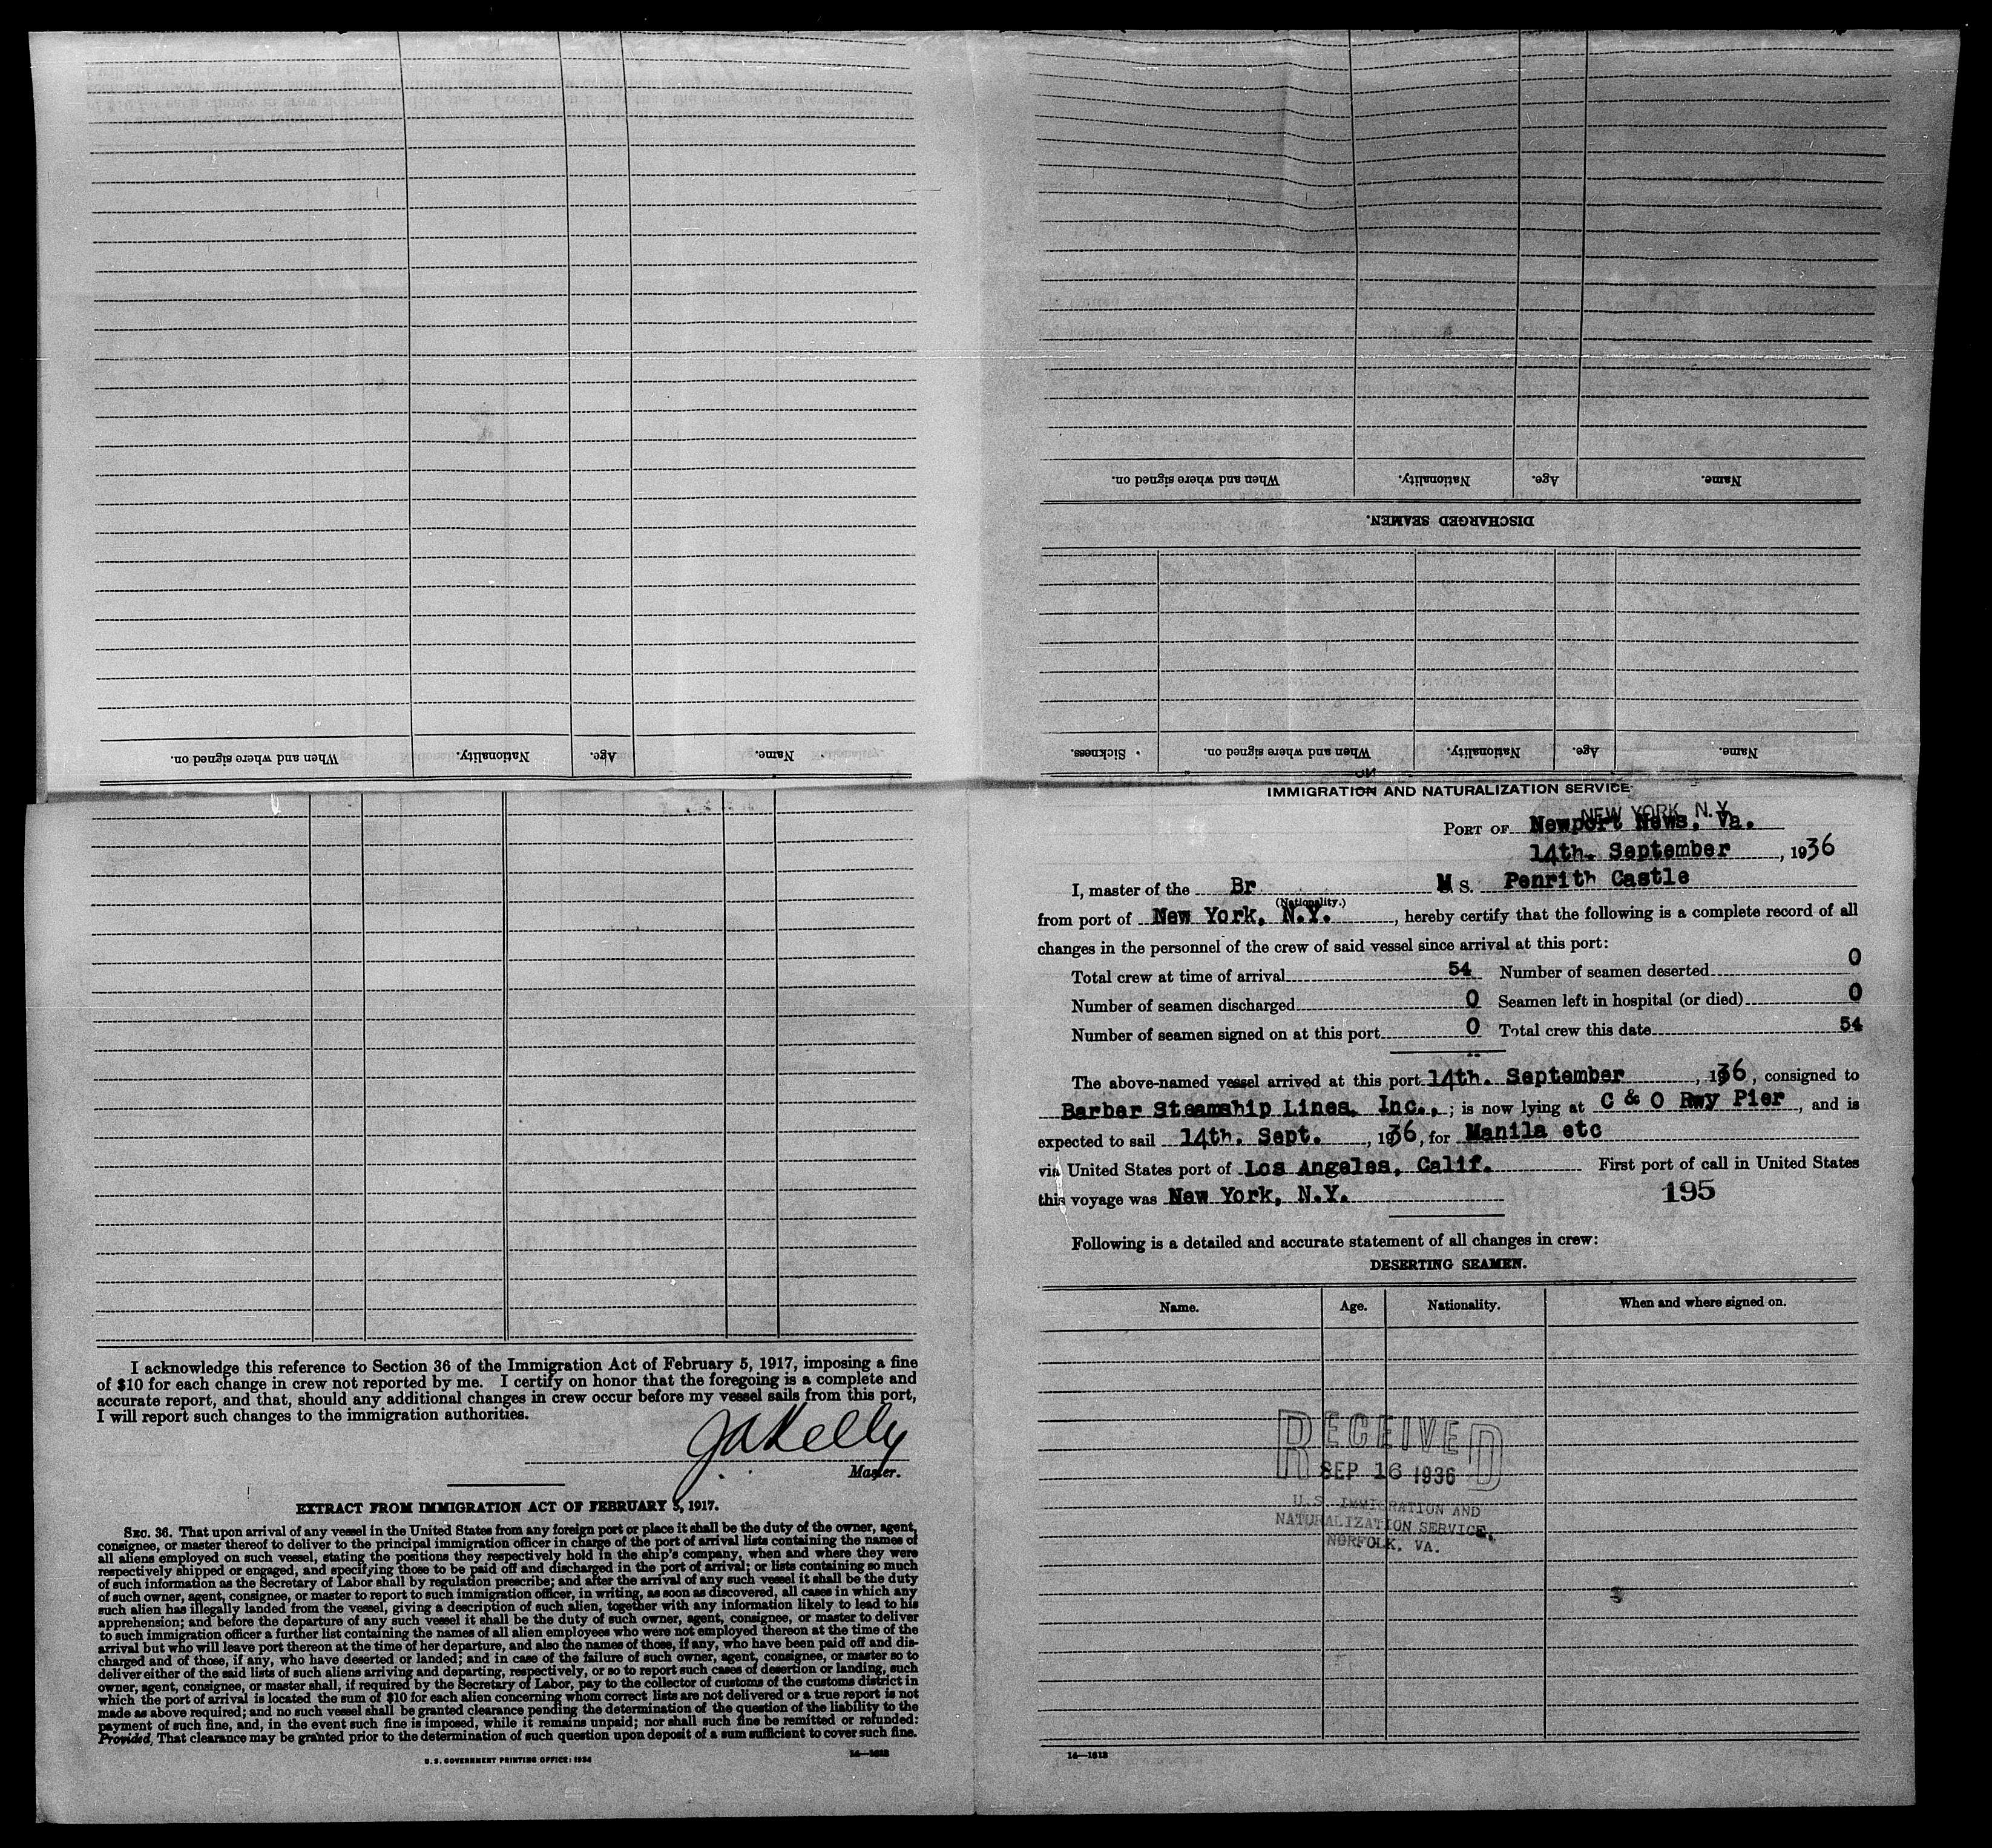 When and where signed on. Nationality. Age. Name.
When and where signed on. Nationality. Age. Name.
DISCHARGED SEAMEN.
Sickness. When and where signed on. Nationality. Age. Name.
I acknowledge this reference to Section 36 of the Immigration Act of February 5, 1917, imposing a fine
of $10 for each change in crew not reported by me. I certify on honor that the foregoing is a complete and
accurate report, and that, should any additional changes in crew occur before my vessel sails from this port,
I will report such changes to the immigration authorities.
JAKelly
Master.
EXTRACT FROM IMMIGRATION ACT OF FEBRUARY 5, 1917.
SEC. 36. That upon arrival of any vessel in the United States from any foreign port or place it shall be the duty of the owner, agent,
consignee, or master thereof to deliver to the principal immigration officer in charge of the port of arrival lists containing the names of
all aliens employed on such vessel, stating the positions they respectively hold in the ship's company, when and where they were
respectively shipped or engaged, and specifying those to be paid off and discharged in the port of arrival; or lists containing so much
of such information as the Secretary of Labor shall by regulation prescribe; and after the arrival of any such vessel it shall be the duty
of such owner, agent, consignee, or master to report to such immigration officer, in writing, as soon as discovered, all cases in which any
such alien has illegally landed from the vessel, giving a description of such alien, together with any information likely to lead to his
apprehension; and before the departure of any such vessel it shall be the duty of such owner, agent, consignee, or master to deliver
to such immigration officer a further list containing the names of all alien employees who were not employed thereon at the time of the
arrival but who will leave port thereon at the time of her departure, and also the names of those, if any, who have been paid off and dis-
charged and of those, if any, who have deserted or landed; and in case of the failure of such owner, agent, consignee, or master so to
deliver either of the said lists of such aliens arriving and departing, respectively, or so to report such cases of desertion or landing, such
owner, agent, consignee, or master shall, if required by the Secretary of Labor, pay to the collector of customs of the customs district in
which the port of arrival is located the sum of $10 for each alien concerning whom correct lists are not delivered or a true report is not
made as above required; and no such vessel shall be granted clearance pending the determination of the question of the liability to the
payment of such fine, and, in the event such fine is imposed, while it remains unpaid; nor shall such fine be remitted or refunded:
Provided, That clearance may be granted prior to the determination of such question upon deposit of a sum sufficient to cover such fine.
U. S. GOVERNMENT PRINTING OFFICE: 1934 14—1613
IMMIGRATION AND NATURALIZATION SERVICE
NEW YORK, N.Y.
PORT OF Newport News, Va.
14th. September, 1936
I, master of the Br M S. Penrith Castle
(Nationality.)
from port of New York, N.Y., hereby certify that the following is a complete record of all
changes in the personnel of the crew of said vessel since arrival at this port:
Total crew at time of arrival 54 Number of seamen deserted 0
Number of seamen discharged 0 Seamen left in hospital (or died) 0
Number of seamen signed on at this port 0 Total crew this date 54
The above-named vessel arrived at this port 14th. September, 1936, consigned to
Barber Steamship Lines, Inc.,; is now lying at C & O Rwy Pier, and is
expected to sail 14th. Sept., 1936, for Manila etc
via United States port of Los Angeles, Calif. First port of call in United States
this voyage was New York, N.Y. 195
Following is a detailed and accurate statement of all changes in crew:
DESERTING SEAMEN.
Name. Age. Nationality. When and where signed on.
RECEIVED
SEP 16 1936
U.S. IMMIGRATION AND
NATURALIZATION SERVICE,
NORFOLK, VA.
14—1613